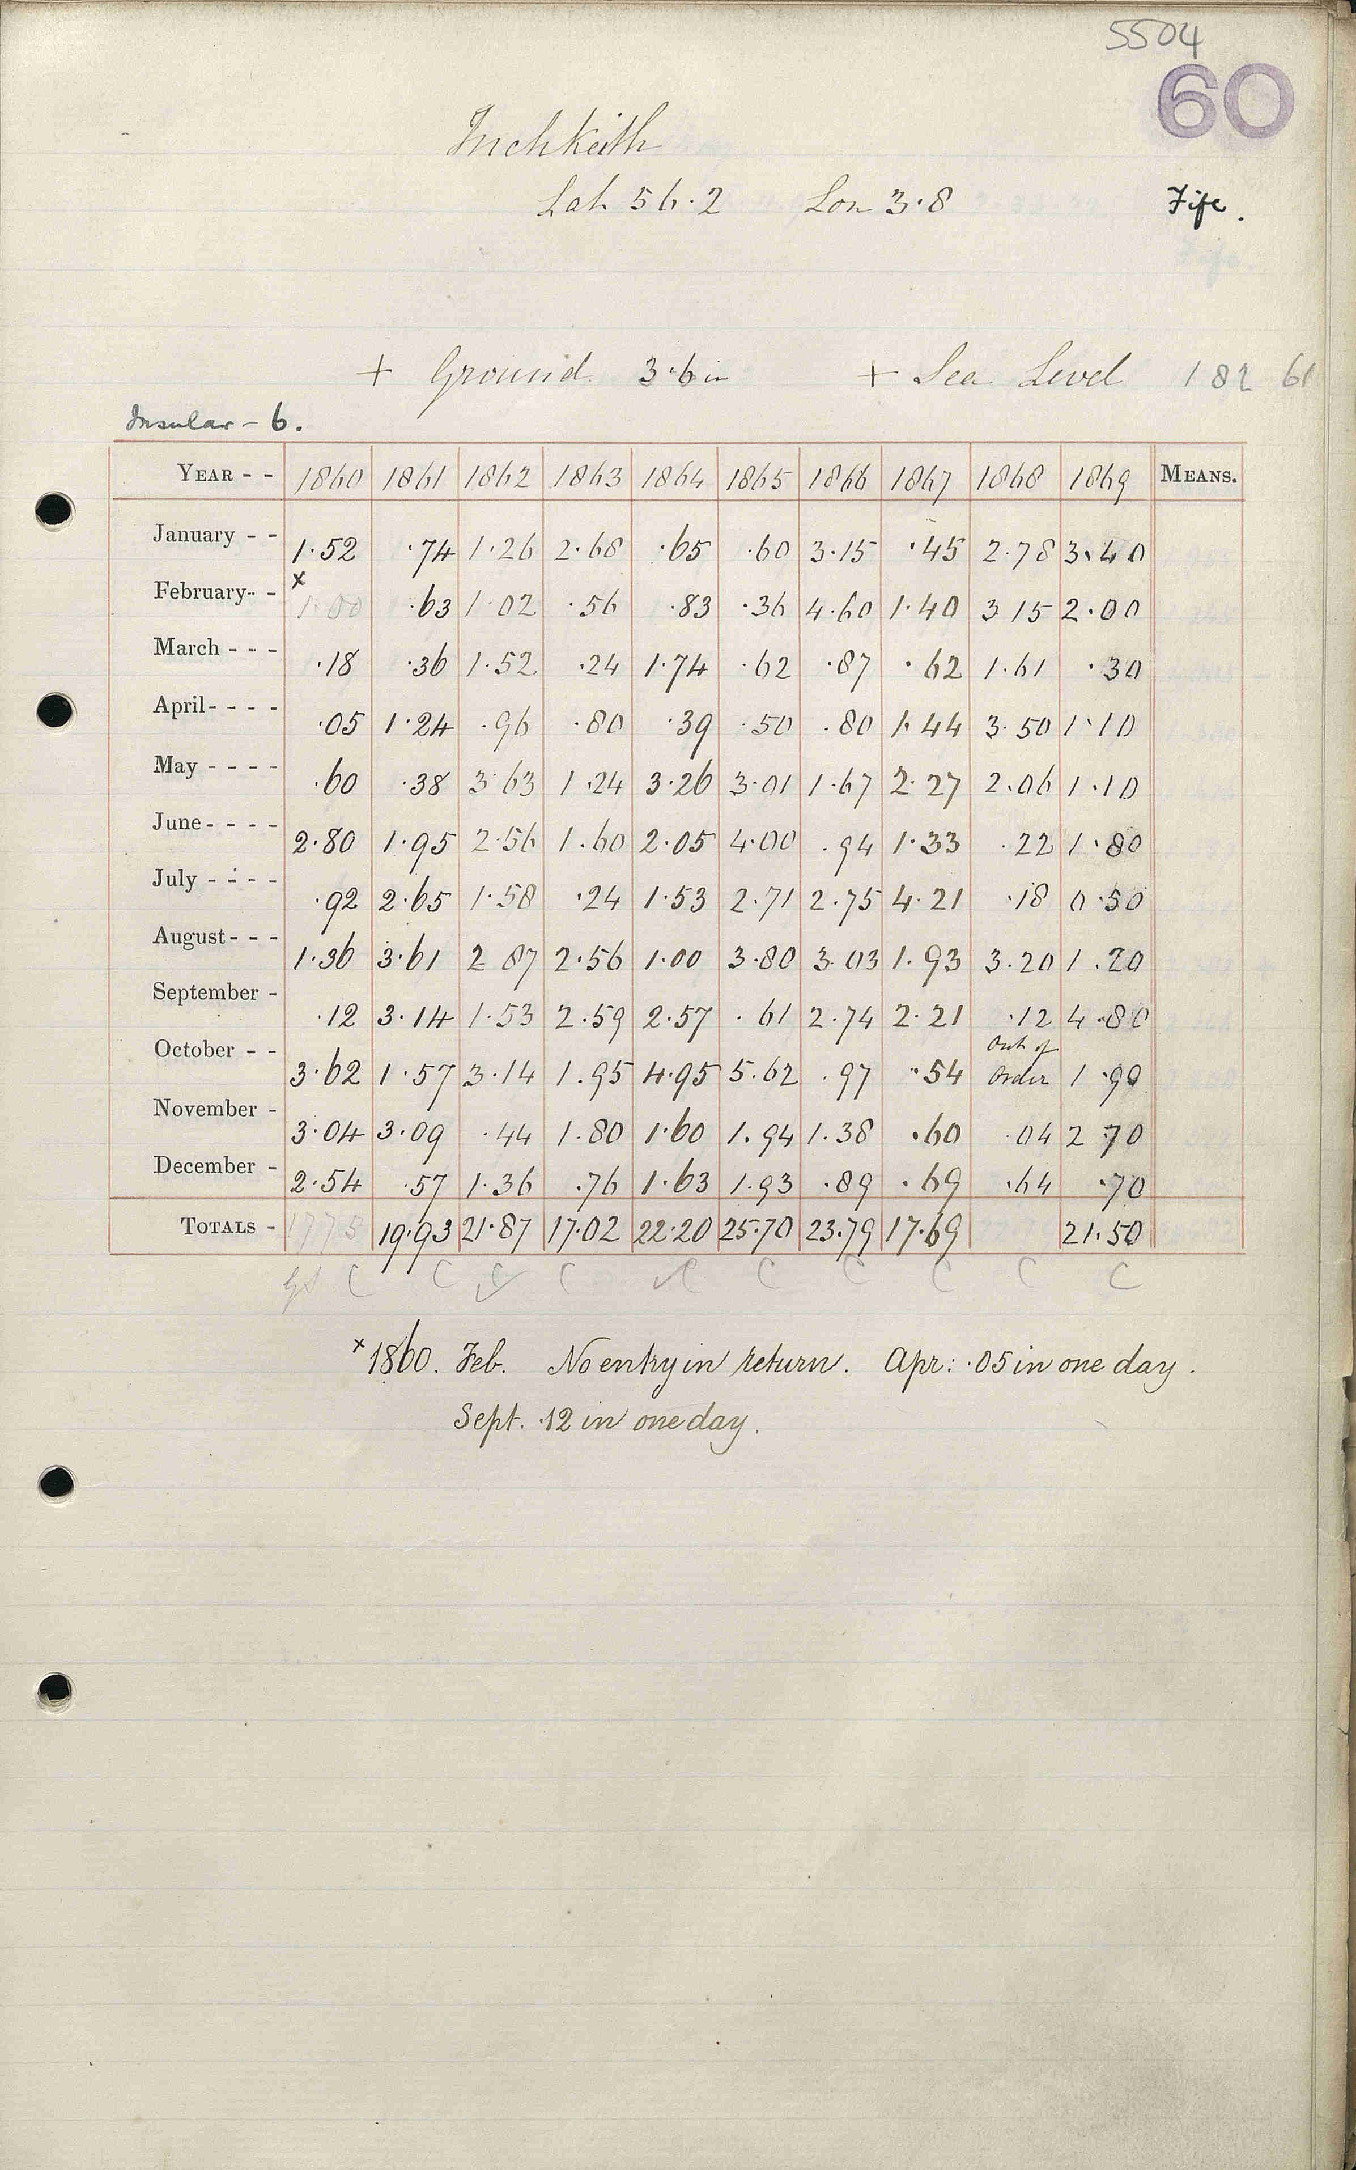 5504
60
Inchkeith
Lat 56.2 Lon 3.8 Fife.
+ Ground 3.6 in + Sea Level 182
Insular - 6.
YEAR - - 1860 1861 1862 1863 1864 1865 1866 1867 1868 1869 MEANS.
January - - 1.52 .74 1.26 2.68 .65 .60 3.15 .45 2.78 3.40
February - - x 1.00 .63 1.02 .56 .83 .36 4.60 1.40 3 15 2.00
March - - - .18 .36 1.52 .24 1.74 .62 .87 .62 1.61 .30
April - - - - .05 1.24 .96 .80 .39 .50 .80 1.44 3.50 1.10
May - - - - .60 .38 3.63 1.24 3.26 3.01 1.67 2.27 2.06 1.10
June - - - - 2.80 1.95 2.56 1.60 2.05 4.00 .94 1.33 .22 1.80
July - - - - .92 2.65 1.58 .24 1.53 2.71 2.75 4.21 .18 0.50
August - - - 1.36 3.61 2 87 2.56 1.00 3.80 3.03 1.93 3.20 1.20
September - .12 3.14 1.53 2.59 2.57 .61 2.74 2.21 .12 4.80
October - - 3.62 1.57 3.14 1.95 4.95 5.62 .97 .54 Out of Order 1.90
November - 3.04 3.09 .44 1.80 1.60 1.94 1.38 .60 .04 2 70
December - 2.54 .57 1.36 .76 1.63 1.93 .89 .69 .64 .70
TOTALS - 1775 19.93 21.87 17.02 22.20 25.70 23.79 17.69 21.50
C C C C C C C C C C
x 1860. Feb. No entry in return. Apr: .05 in one day.
Sept. .12 in one day.